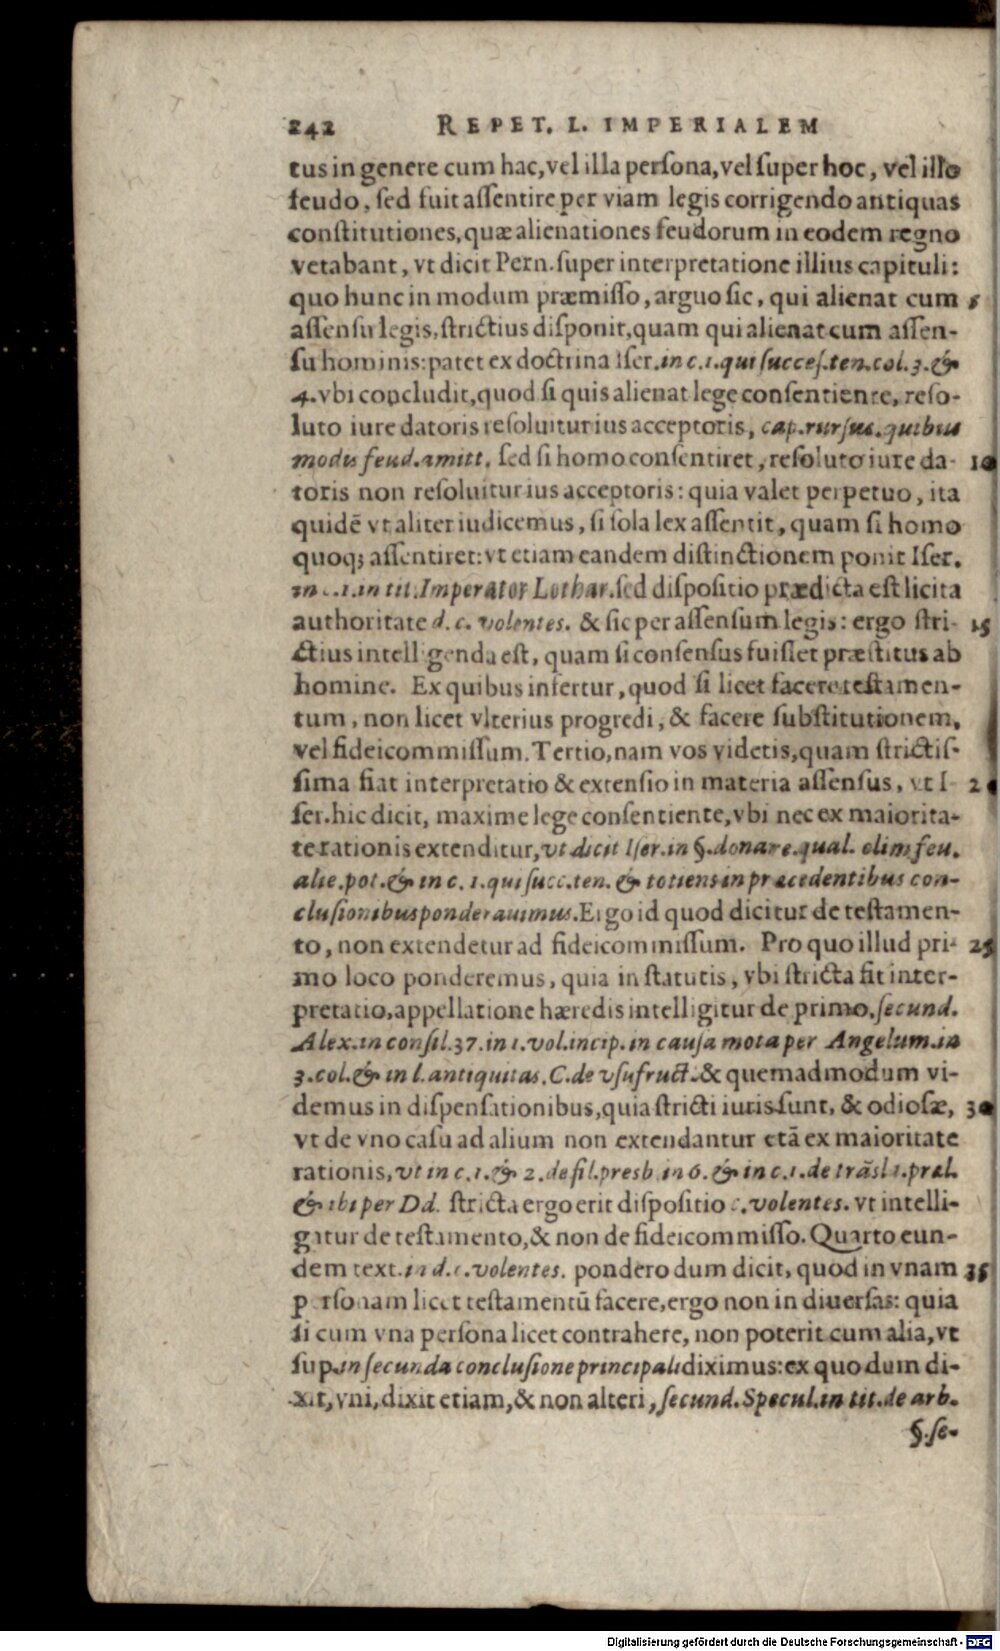 242 REPET. L. IMPERIALEM
tus in genere cum hac, vel illa persona, vel super hoc, vel illo
feudo, sed fuit assentire per viam legis corrigendo antiquas
constitutiones, quæ alienationes feudorum in eodem regno
vetabant, vt dicit Pern. super interpretatione illius capituli:
quo hunc in modum præmisso, arguo sic, qui alienat cum 5
assensu legis, strictius disponit, quam qui alienat cum assen-
su hominis: patet ex doctrina Iser. in c. 1. qui succes. ten. col. 3. &
4. vbi concludit, quod si quis alienat lege consentiente, reso-
luto iure datoris resoluitur ius acceptoris, cap. rursus. quibus
modis feud. amitt. sed si homo consentiret, resoluto iure da- 10
toris non resoluitur ius acceptoris: quia valet perpetuo, ita
quidẽ vt aliter iudicemus, si sola lex assentit, quam si homo
quoq; assentiret: vt etiam eandem distinctionem ponit Iser.
in c. 1. in tit. Imperator Lothar. sed dispositio prædicta est licita
authoritate d. c. volentes. & sic per assensum legis: ergo stri- 15
ctius intelligenda est, quam si consensus fuisset præstitus ab
homine. Ex quibus infertur, quod si licet facere testamen-
tum, non licet vlterius progredi, & facere substitutionem,
vel fideicommissum. Tertio, nam vos videtis, quam strictis-
sima fiat interpretatio & extensio in materia assensus, vt I- 20
ser. hic dicit, maxime lege consentiente, vbi nec ex maiorita-
te rationis extenditur, vt dicit Iser. in §. donare. qual. olim feu.
alie. pot. & in c. 1. qui succ. ten. & totiens in præcedentibus con-
clusionibus ponderauimus. Ergo id quod dicitur de testamen-
to, non extendetur ad fideicommissum. Pro quo illud pri- 25
mo loco ponderemus, quia in statutis, vbi stricta fit inter-
pretatio, appellatione hæredis intelligitur de primo, secund.
Alex. in consil. 37. in 1. vol. incip. in causa mota per Angelum. in
3. col. & in l. antiquitas. C. de vsufruct. & quemadmodum vi-
demus in dispensationibus, quia stricti iuris sunt, & odiosæ, 30
vt de vno casu ad alium non extendantur etã ex maioritate
rationis, vt in c. 1. & 2. de fil. presb. in 6. & in c. 1. de trãsl. præl.
& ibi per Dd. stricta ergo erit dispositio c. volentes. vt intelli-
gatur de testamento, & non de fideicommisso. Quarto eun-
dem text. in d. c. volentes. pondero dum dicit, quod in vnam 35
personam licet testamentũ facere, ergo non in diuersas: quia
si cum vna persona licet contrahere, non poterit cum alia, vt
sup. in secunda conclusione principali diximus: ex quo dum di-
xit, vni, dixit etiam, & non alteri, secund. Specul. in tit. de arb.
§. se-
Digitalisierung gefördert durch die Deutsche Forschungsgemeinschaft - DFG